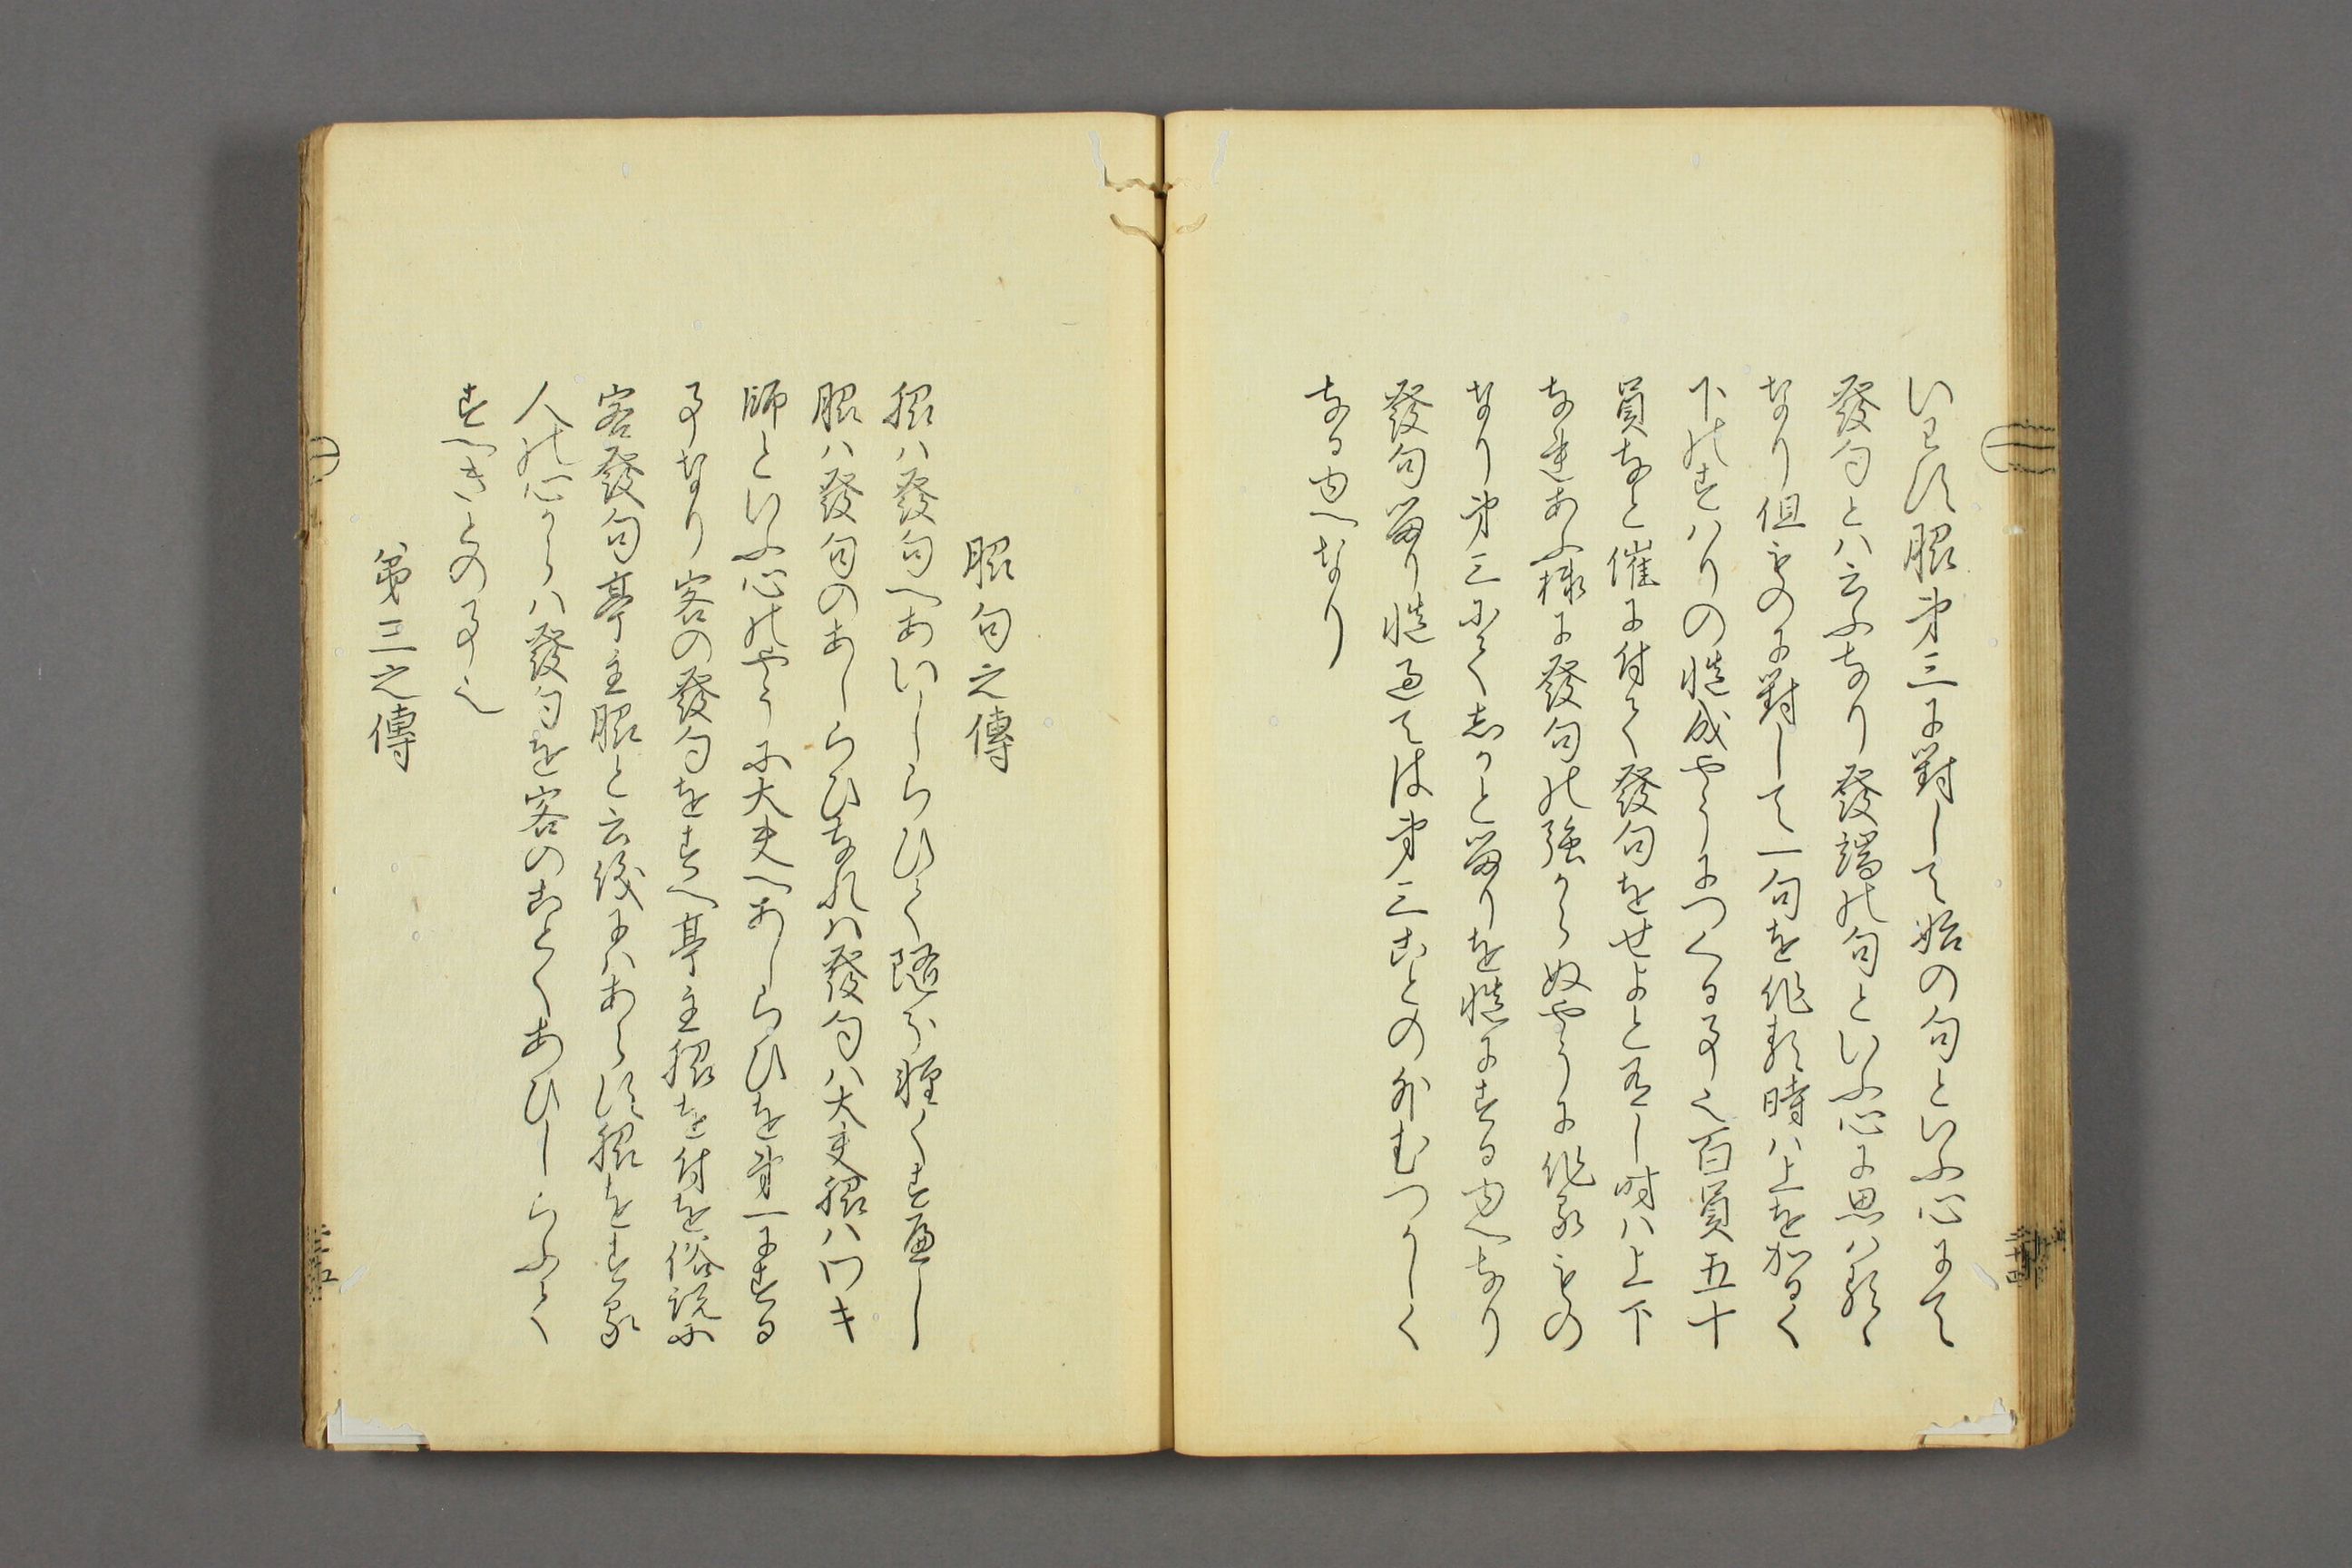 いはす脇第三に對して始の句といふ心にて
發句とハ云ふなり發端の句といふ心に思ハるゝ
なり但ものに對して一句を作る時ハ上を加るく
下のすハりの慥成やうにつくる事也百員五十
員など催に付て發句をせよと有し時ハ上下
な連あふ様に發句の強からぬやうに作るもの
なり第三にてしかと留りを慥にする由へなり
發句留り慥過ては第三ことの外むつかしく
なる由へなり
脇句之傳
脇ハ發句へあいしらひて隨分軽くす遍し
脇ハ發句のあしらひなれハ發句ハ大夫脇ハワキ
師といふ心のやうに大夫へあしらひを第一にする
事なり客の發句をすへ亭主脇を付を俗説に
客發句亭主脇と云後にハあらす脇をする
人の心からハ發句を客のことくあひしらふて
すへきとの事也
第三之傳